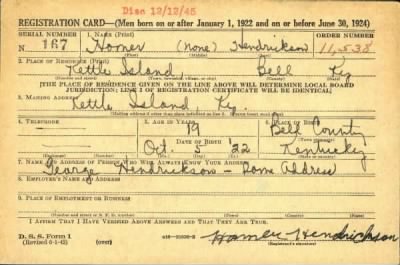 Disc 12/12/45
REGISTRATION CARD—(Men born on or after January 1, 1922 and on or before June 30, 1924)
SERIAL NUMBER 1. NAME (Print) ORDER NUMBER
N 167 Homer (None) Hendrickson 11,538
(First) (Middle) (Last)
2. PLACE OF RESIDENCE (Print)
Kettle Island Bell Ky
(Number and street) (Town, township, village, or city) (County) (State)
[THE PLACE OF RESIDENCE GIVEN ON THE LINE ABOVE WILL DETERMINE LOCAL BOARD
JURISDICTION; LINE 2 OF REGISTRATION CERTIFICATE WILL BE IDENTICAL]
3. MAILING ADDRESS
Kettle Island, Ky.
[Mailing address if other than place indicated on line 2. If same insert word same]
4. TELEPHONE 5. AGE IN YEARS 6. PLACE OF BIRTH
19 Bell County
DATE OF BIRTH
Oct. 5 '22 Kentucky
(Exchange) (Number) (Mo.) (Day) (Yr.) (State or country)
7. NAME AND ADDRESS OF PERSON WHO WILL ALWAYS KNOW YOUR ADDRESS
George Hendrickson - Same Address
8. EMPLOYER'S NAME AND ADDRESS
9. PLACE OF EMPLOYMENT OR BUSINESS
(Number and street or R. F. D. number) (Town) (County) (State)
I AFFIRM THAT I HAVE VERIFIED ABOVE ANSWERS AND THAT THEY ARE TRUE.
D. S. S. Form 1
(Revised 6-1-42) (over) Homer Hendrickson
(Registrant's signature)